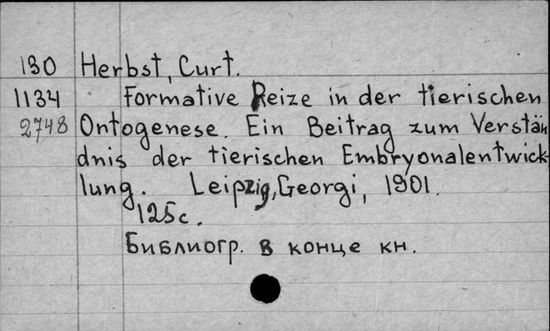 130 Herbst, Curt.
1134 Formative Reize in der tierischen
2748 Ontogenese. Ein Beitrag zum Verstän
dnis der tierischen Embryonalentwick-
lung. Leipzig, Georgi, 1901.
125 с.
Библиогр. в конце кн.